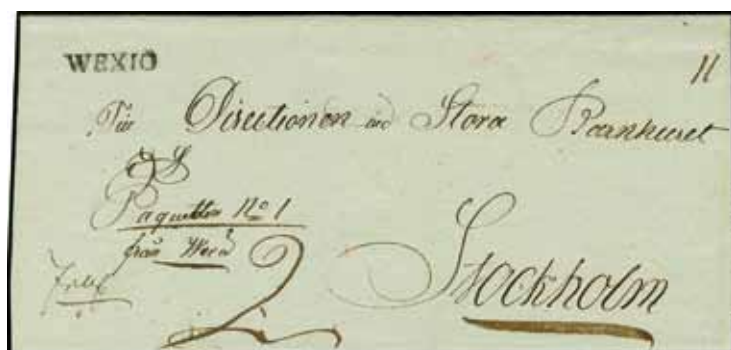 WEXIO
11
Till Directionen vid Stora Barnhuset
Paquetten No 1
från Wexiö
Stockholm